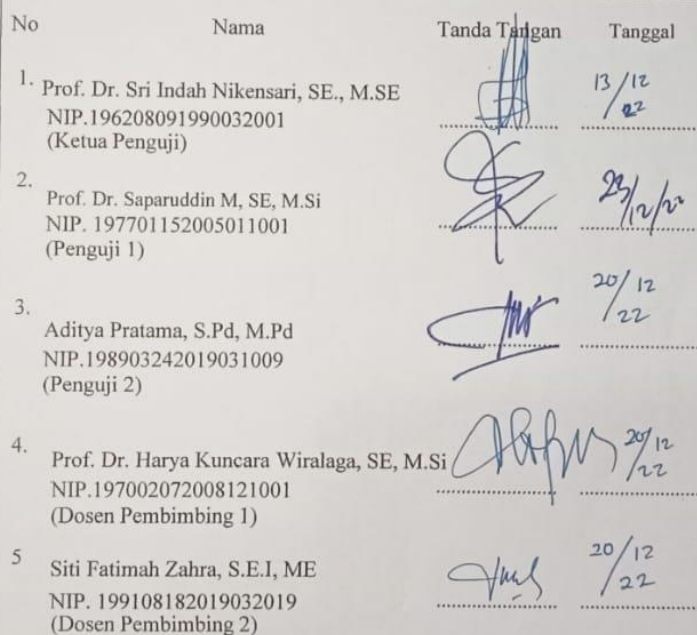 No Nama Tanda Tangan Tanggal
1. Prof. Dr. Sri Indah Nikensari, SE., M.SE 13/12
NIP.196208091990032001 22
(Ketua Penguji)
2.
Prof. Dr. Saparuddin M, SE, M.Si 23/12/22
NIP. 197701152005011001
(Penguji 1)
3. 20/12
Aditya Pratama, S.Pd, M.Pd 22
NIP.198903242019031009
(Penguji 2)
4. Prof. Dr. Harya Kuncara Wiralaga, SE, M.Si 20/12
NIP.197002072008121001 22
(Dosen Pembimbing 1)
5 Siti Fatimah Zahra, S.E.I, ME 20/12
NIP. 199108182019032019 22
(Dosen Pembimbing 2)